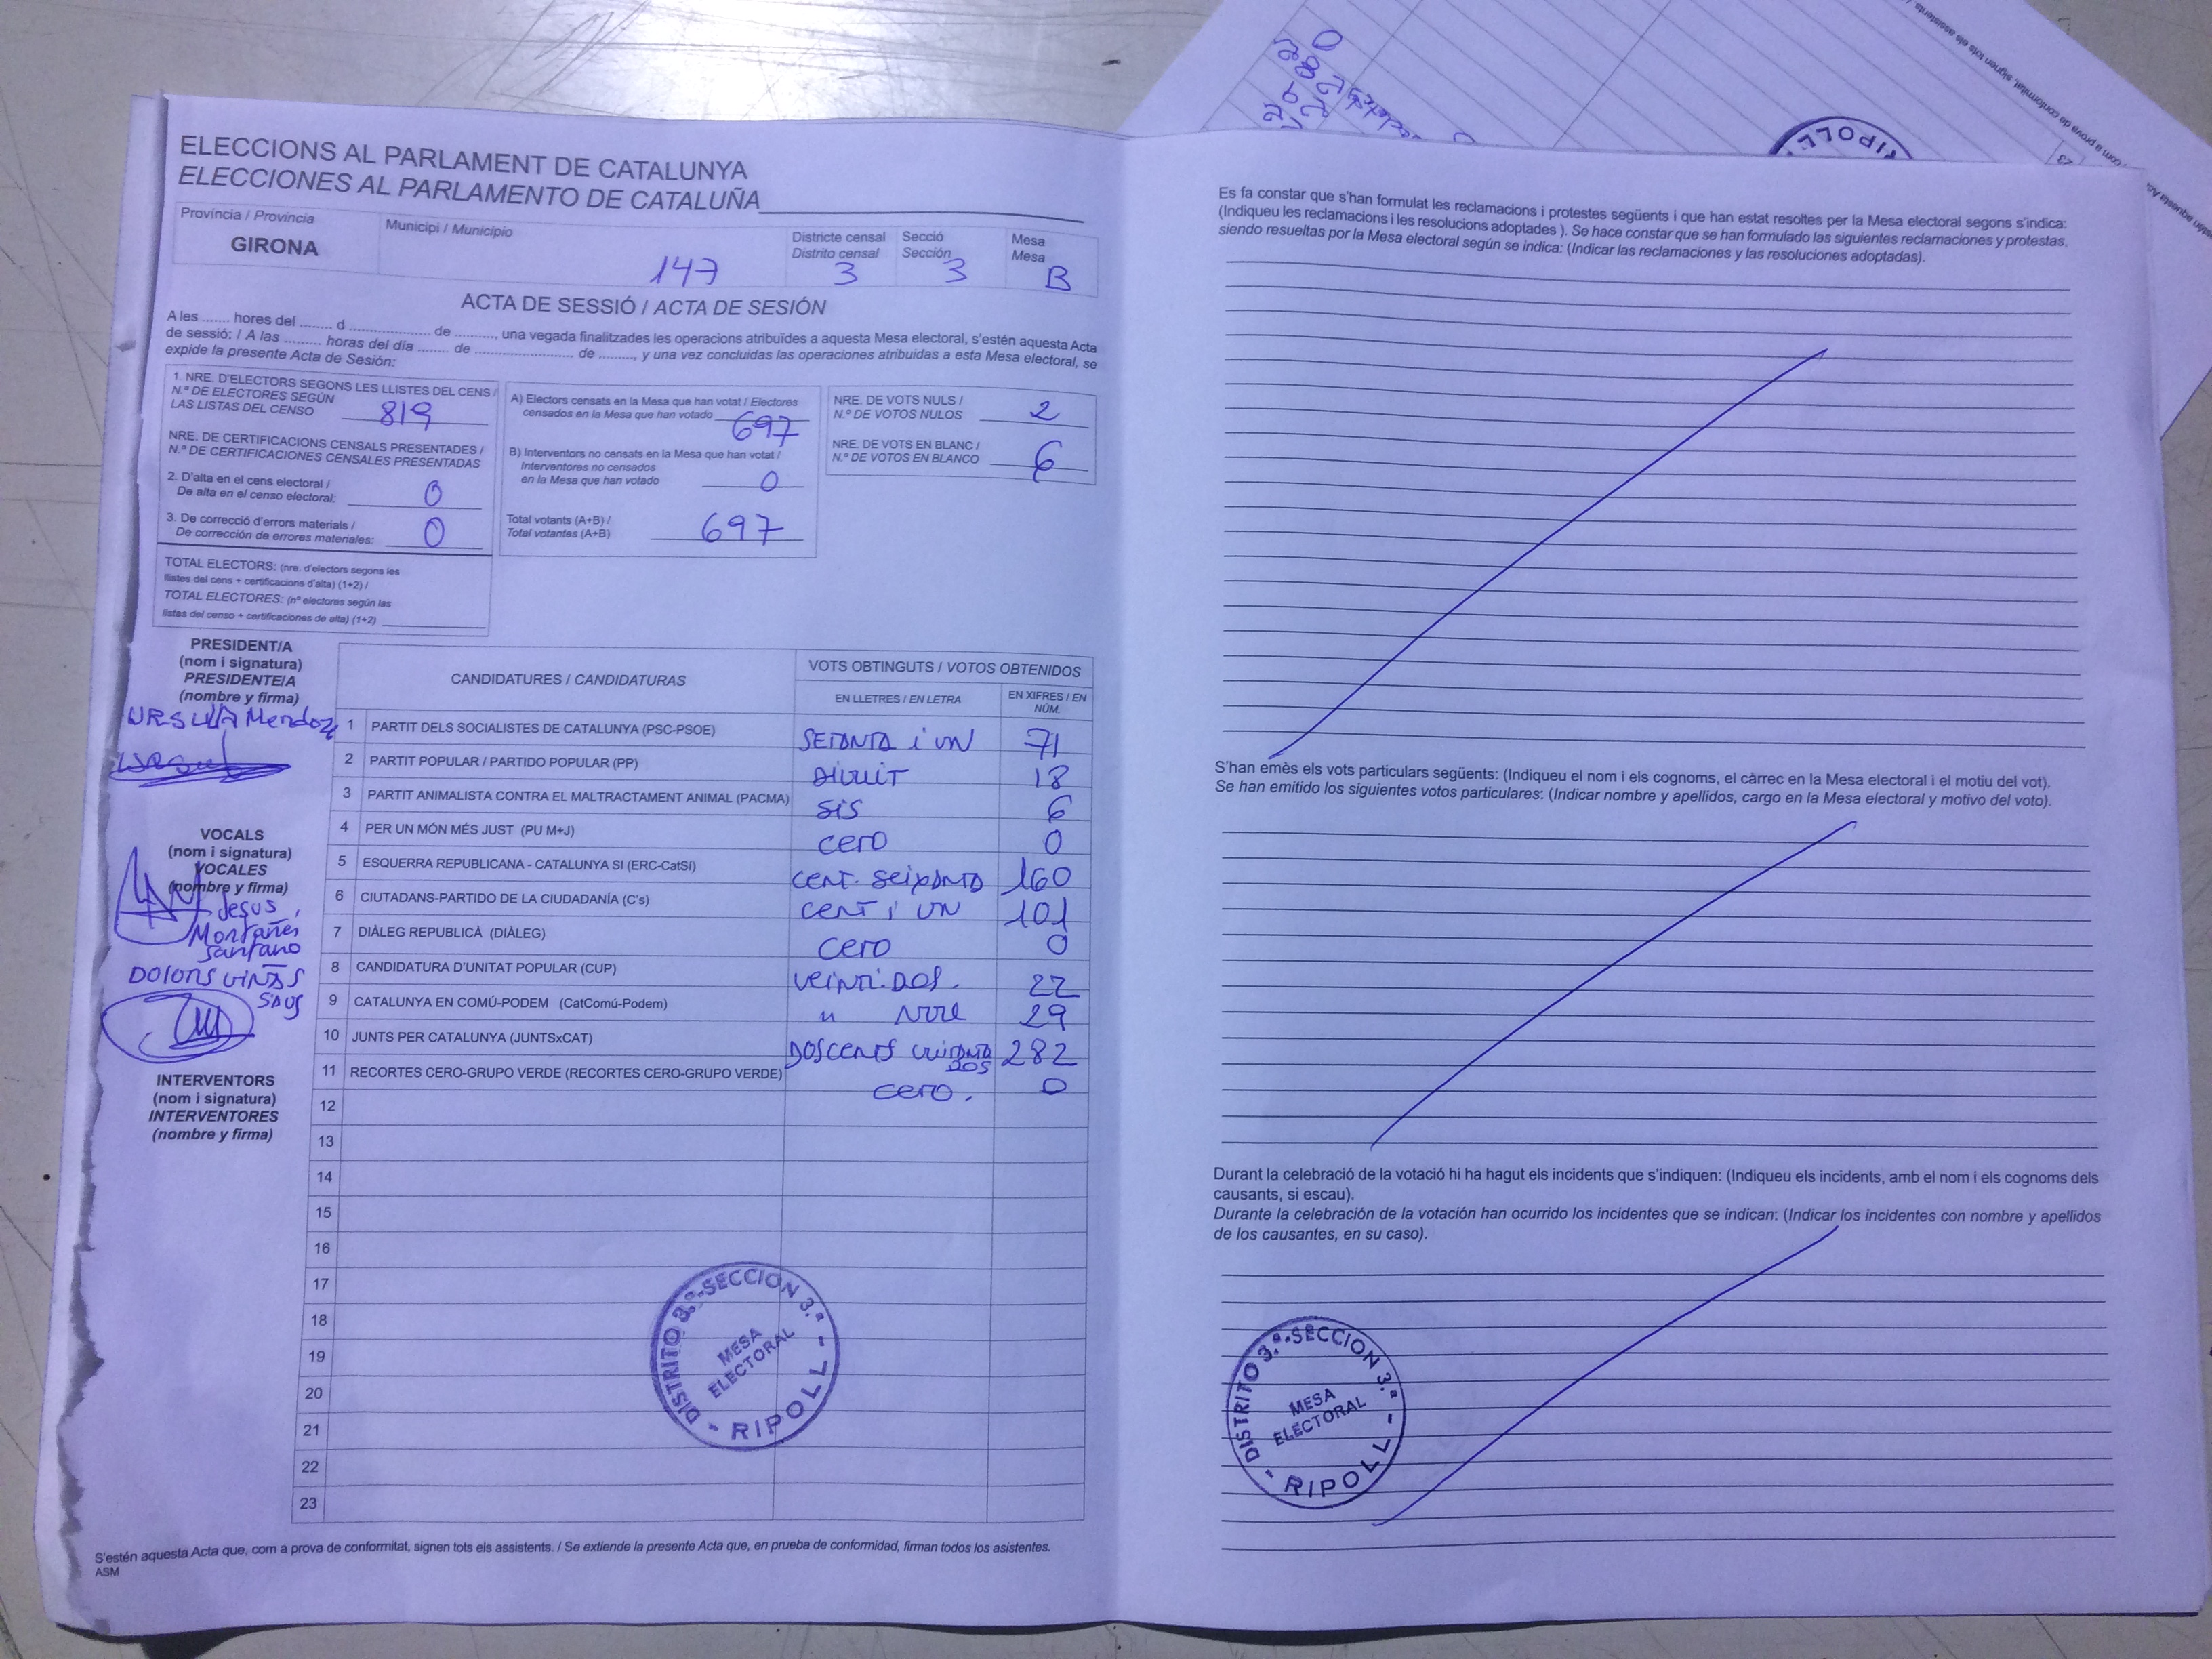 ELECCIONS AL PARLAMENT DE CATALUNYA
ELECCIONES AL PARLAMENTO DE CATALUÑA
Província / Provincia
GIRONA
Municipi / Municipio
147
Districte censal
Distrito censal
3
Secció
Sección
3
Mesa
Mesa
B
ACTA DE SESSIÓ / ACTA DE SESIÓN
A les ....... hores del ........ d .................... de .........., una vegada finalitzades les operacions atribuïdes a aquesta Mesa electoral, s'estén aquesta Acta
de sessió: / A las ......... horas del día ....... de ........................ de ........., y una vez concluidas las operaciones atribuidas a esta Mesa electoral, se
expide la presente Acta de Sesión:
1. NRE. D'ELECTORS SEGONS LES LLISTES DEL CENS /
N.º DE ELECTORES SEGÚN
LAS LISTAS DEL CENSO 819
NRE. DE CERTIFICACIONS CENSALS PRESENTADES /
N.º DE CERTIFICACIONES CENSALES PRESENTADAS
2. D'alta en el cens electoral /
De alta en el censo electoral: 0
3. De correcció d'errors materials /
De corrección de errores materiales: 0
TOTAL ELECTORS: (nre. d'electors segons les
llistes del cens + certificacions d'alta) (1+2) /
TOTAL ELECTORES: (nº electores según las
listas del censo + certificaciones de alta) (1+2)
A) Electors censats en la Mesa que han votat / Electores
censados en la Mesa que han votado 697
B) Interventors no censats en la Mesa que han votat /
Interventores no censados
en la Mesa que han votado 0
Total votants (A+B) /
Total votantes (A+B) 697
NRE. DE VOTS NULS /
N.º DE VOTOS NULOS 2
NRE. DE VOTS EN BLANC /
N.º DE VOTOS EN BLANCO 6
PRESIDENT/A
(nom i signatura)
PRESIDENTE/A
(nombre y firma)
URSULA Mendoza
VOCALS
(nom i signatura)
VOCALES
(nombre y firma)
Jesus
Montañes
Santano
DOLORS VIÑAS
SAUS
INTERVENTORS
(nom i signatura)
INTERVENTORES
(nombre y firma)
CANDIDATURES / CANDIDATURAS
VOTS OBTINGUTS / VOTOS OBTENIDOS
EN LLETRES / EN LETRA
EN XIFRES / EN
NÚM.
1 PARTIT DELS SOCIALISTES DE CATALUNYA (PSC-PSOE) SETANTA i UN 71
2 PARTIT POPULAR / PARTIDO POPULAR (PP) DIVUIT 18
3 PARTIT ANIMALISTA CONTRA EL MALTRACTAMENT ANIMAL (PACMA) SIS 6
4 PER UN MÓN MÉS JUST (PU M+J) cero 0
5 ESQUERRA REPUBLICANA - CATALUNYA SI (ERC-CatSí) CENT. SEIXANTA 160
6 CIUTADANS-PARTIDO DE LA CIUDADANÍA (C's) CENT i UN 101
7 DIÀLEG REPUBLICÀ (DIÀLEG) cero 0
8 CANDIDATURA D'UNITAT POPULAR (CUP) VEINTI.DOS. 22
9 CATALUNYA EN COMÚ-PODEM (CatComú-Podem) " 29
10 JUNTS PER CATALUNYA (JUNTSxCAT) DOSCENTS VUITANTA DOS 282
11 RECORTES CERO-GRUPO VERDE (RECORTES CERO-GRUPO VERDE) cero. 0
12
13
14
15
16
17
18
19
20
21
22
23
DISTRITO 3.º - SECCION 3.ª - RIPOLL -
MESA
ELECTORAL
S'estén aquesta Acta que, com a prova de conformitat, signen tots els assistents. / Se extiende la presente Acta que, en prueba de conformidad, firman todos los asistentes.
ASM
Es fa constar que s'han formulat les reclamacions i protestes següents i que han estat resoltes per la Mesa electoral segons s'indica:
(Indiqueu les reclamacions i les resolucions adoptades ). Se hace constar que se han formulado las siguientes reclamaciones y protestas,
siendo resueltas por la Mesa electoral según se indica: (Indicar las reclamaciones y las resoluciones adoptadas).
S'han emès els vots particulars següents: (Indiqueu el nom i els cognoms, el càrrec en la Mesa electoral i el motiu del vot).
Se han emitido los siguientes votos particulares: (Indicar nombre y apellidos, cargo en la Mesa electoral y motivo del voto).
Durant la celebració de la votació hi ha hagut els incidents que s'indiquen: (Indiqueu els incidents, amb el nom i els cognoms dels
causants, si escau).
Durante la celebración de la votación han ocurrido los incidentes que se indican: (Indicar los incidentes con nombre y apellidos
de los causantes, en su caso).
DISTRITO 3.º - SECCION 3.ª - RIPOLL -
MESA
ELECTORAL
RIPOLL